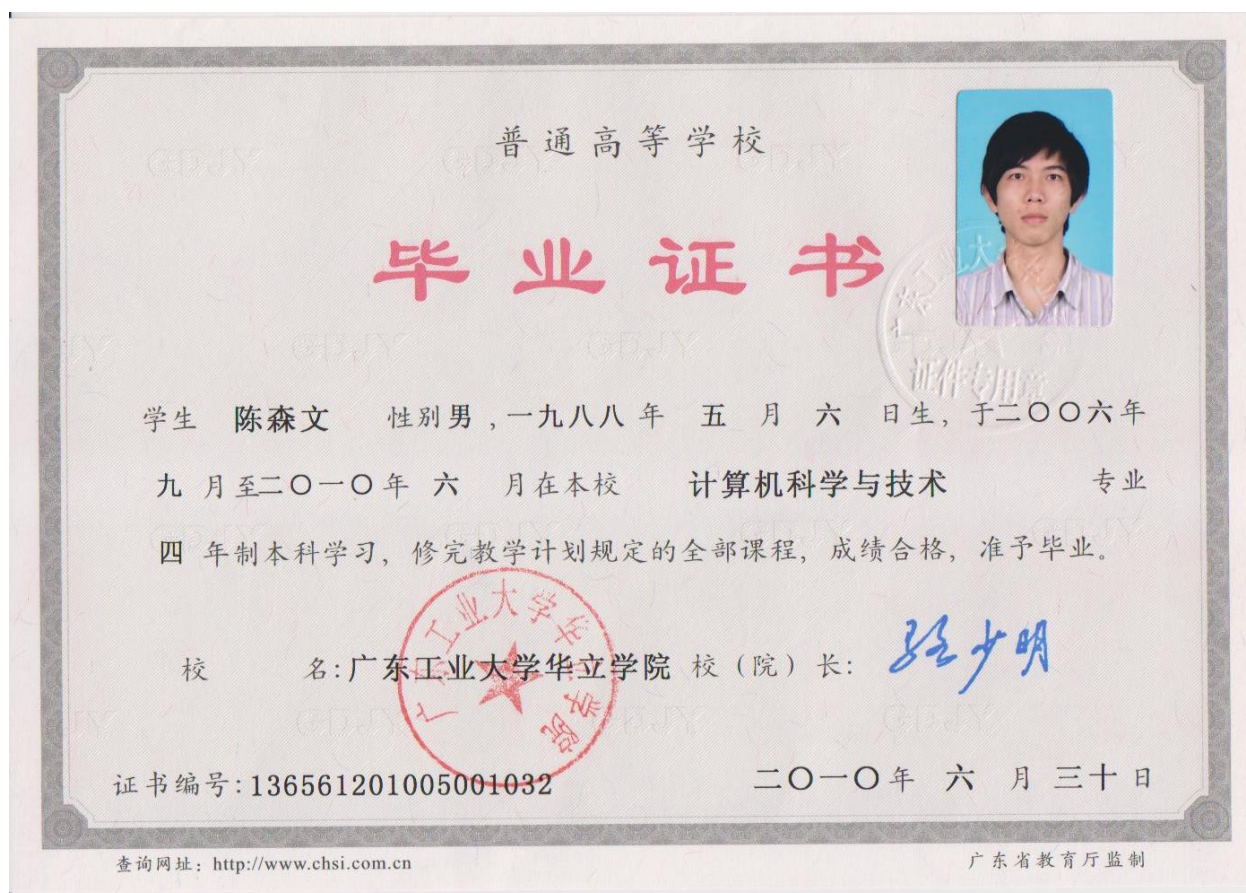 普通高等学校
毕业证书
学生 陈森文 性别男,一九八八年 五 月 六 日生, 于二〇〇六年
九 月至二〇一〇年 六 月在本校 计算机科学与技术 专业
四 年制本科学习, 修完教学计划规定的全部课程, 成绩合格, 准予毕业。
广东工业大学华立学院
校 名:广东工业大学华立学院 校（院）长: 骆少明
证书编号:136561201005001032 二〇一〇年 六 月 三十 日
查询网址: http://www.chsi.com.cn 广东省教育厅监制
证件专用章